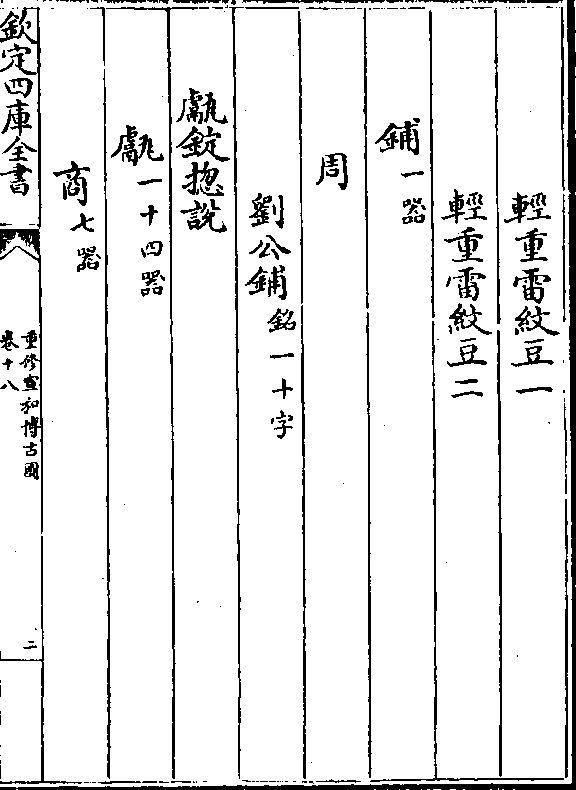 輕重雷紋豆一
輕重雷紋豆二
鋪一器
周
劉公鋪銘一十字
甗錠揔說
甗一十四器
商七器
欽定四庫全書
重修宣和博古圖
卷十八
二